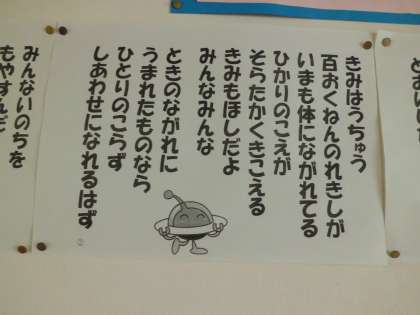 きみはうちゅう
百おくねんのれきしが
いまも体にながれてる
ひかりのこえが
そらたかくきこえる
きみもほしだよ
みんなみんな
ときのながれに
うまれたものなら
ひとりのこらず
しあわせになれるはず
みんないのちを
もやすんだ